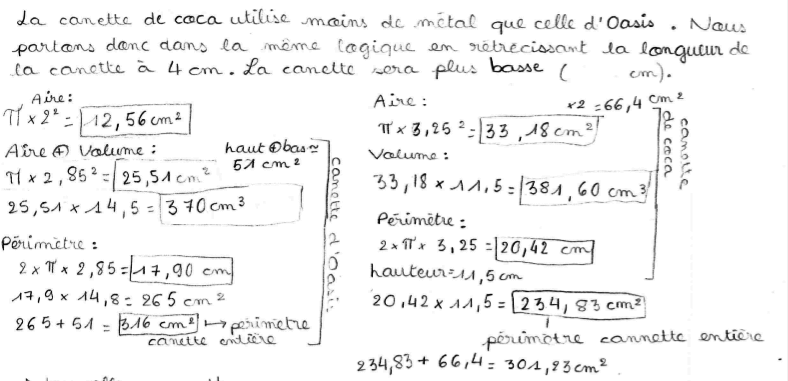 La canette de coca utilise moins de métal que celle d'Oasis. Nous
partons donc dans la même logique en rétrécissant la longueur de
la canette à 4 cm. La canette sera plus basse ( cm).
Aire :
π × 2² = 12,56 cm²
Aire ⊕ Volume :
π × 2,85² = 25,51 cm²
haut ⊕ bas ≃
51 cm²
25,51 × 14,5 = 370 cm³
Périmètre :
2 × π × 2,85 = 17,90 cm
17,9 × 14,8 = 265 cm²
265 + 51 = 316 cm² ↦ périmetre
canette entière
canette d'Oasis
Aire :
×2 = 66,4 cm²
π × 3,25² = 33,18 cm²
Volume :
33,18 × 11,5 = 381,60 cm³
Périmètre :
2 × π × 3,25 = 20,42 cm
hauteur = 11,5 cm
20,42 × 11,5 = 234,83 cm²
périmètre cannette entière
234,83 + 66,4 = 301,23 cm²
canette
de coca